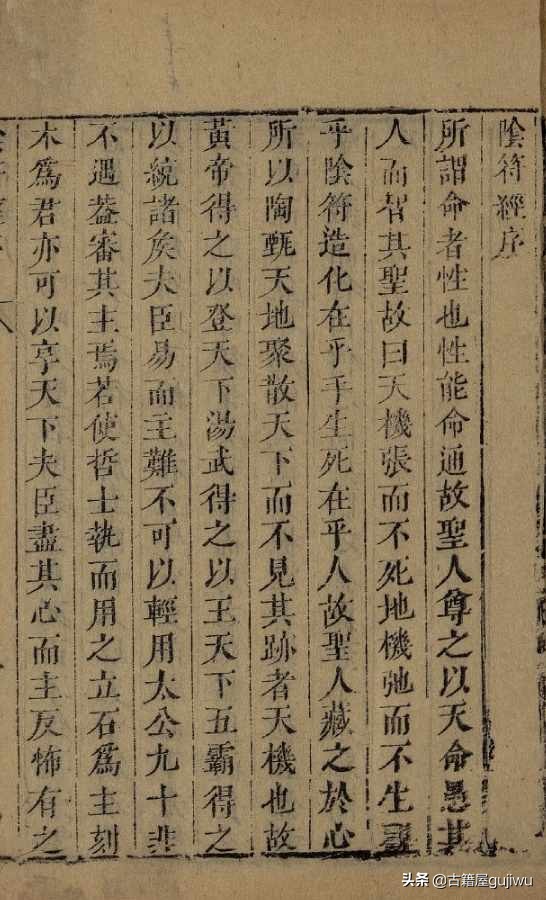 陰符經序
所謂命者性也性能命通故聖人尊之以天命愚其
人而智其聖故曰天機張而不死地機弛而不生觀
乎陰符造化在乎手生死在乎人故聖人藏之於心
所以陶甄天地聚散天下而不見其跡者天機也故
黃帝得之以登天下湯武得之以王天下五霸得之
以統諸矦夫臣易而主難不可以輕用太公九十非
不遇葢審其主焉若使哲士執而用之立石爲主刻
木爲君亦可以享天下夫臣盡其心而主反怖有之
头条 @古籍屋gujiwu